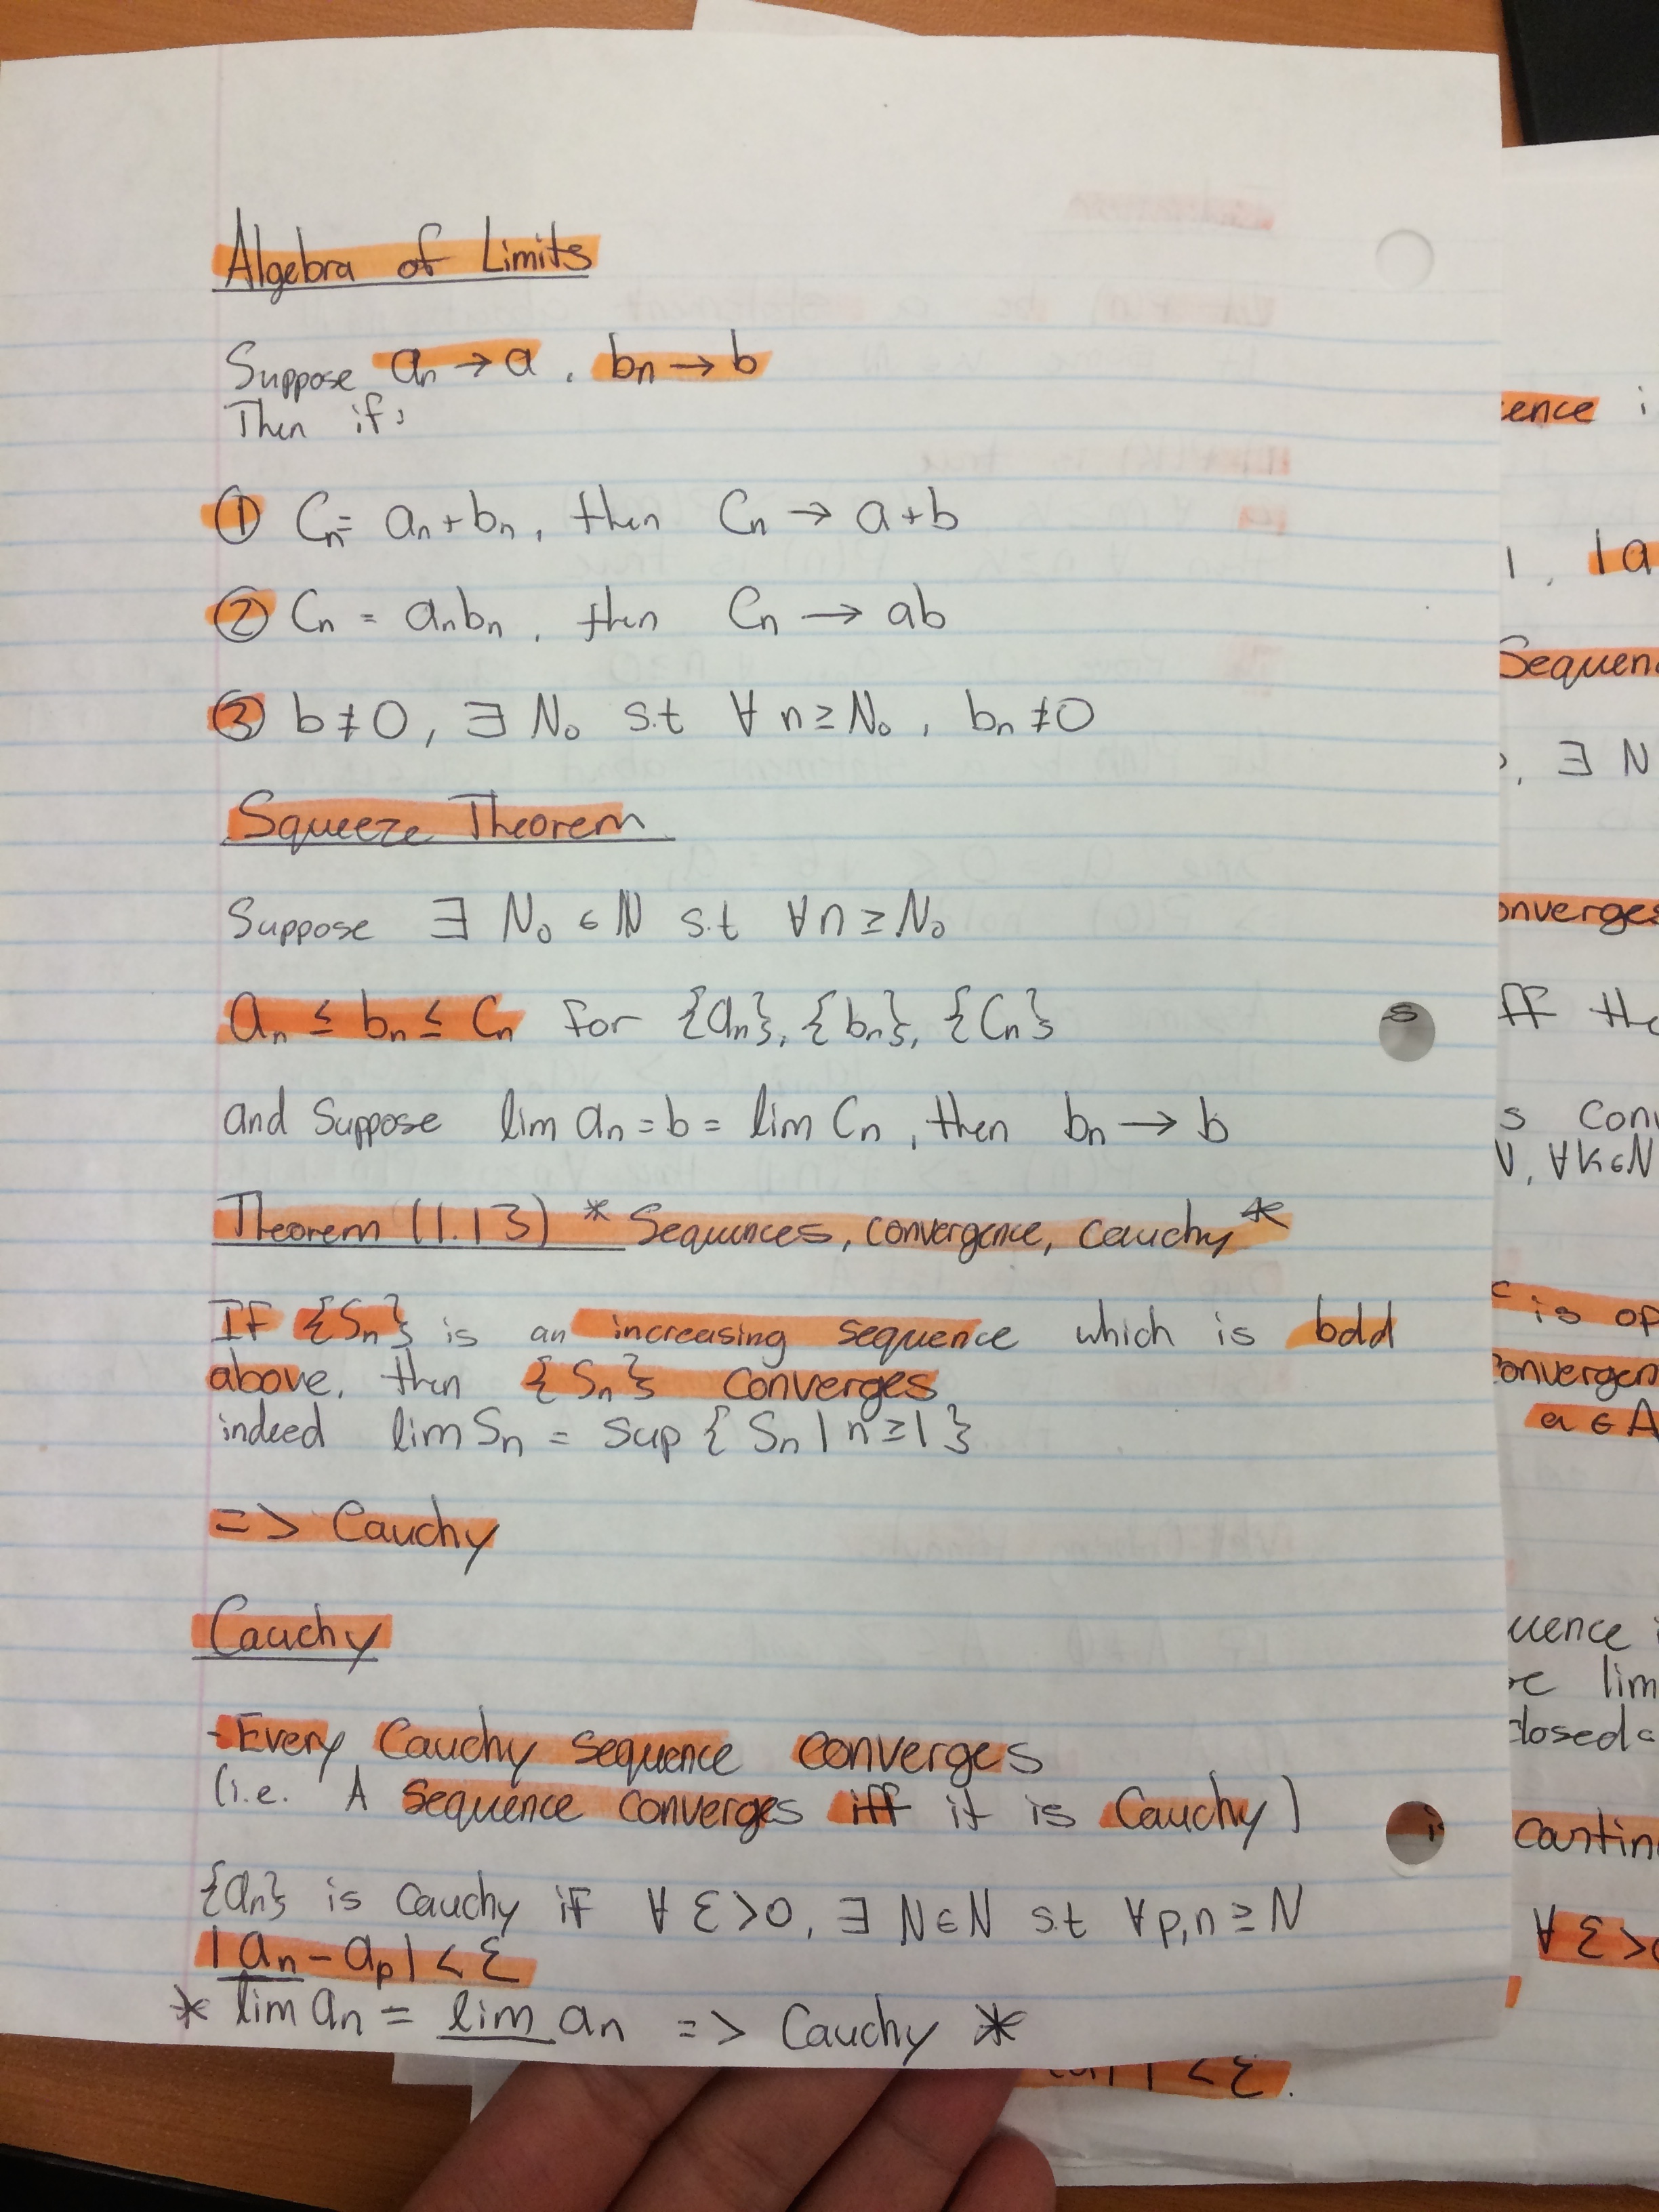 Algebra of Limits
Suppose aₙ → a, bₙ → b
Then if:
① Cₙ = aₙ + bₙ, then Cₙ → a + b
② Cₙ = aₙbₙ, then Cₙ → ab
③ b ≠ 0, ∃ N₀ s.t ∀ n ≥ N₀, bₙ ≠ 0
Squeeze Theorem
Suppose ∃ N₀ ∈ ℕ s.t ∀n ≥ N₀
aₙ ≤ bₙ ≤ Cₙ for {aₙ}, {bₙ}, {Cₙ}
and Suppose lim aₙ = b = lim Cₙ, then bₙ → b
Theorem (1.13) * Sequences, convergence, Cauchy *
If {Sₙ} is an increasing sequence which is bdd
above, then {Sₙ} converges
indeed lim Sₙ = sup { Sₙ | n ≥ 1 }
=> Cauchy
Cauchy
- Every Cauchy sequence converges
(i.e. A sequence converges iff it is Cauchy)
{aₙ} is Cauchy if ∀ ε > 0, ∃ N ∈ ℕ s.t ∀ p,n ≥ N
| aₙ - aₚ | < ε
* l̅i̅m̅ aₙ = l̲i̲m̲ aₙ => Cauchy *
ence i
1, |a
Sequen
, ∃ N
onverges
ff the
s Conv
N, ∀k∈N
is op
onvergen
a ∈ A
uence i
lim
closed
contin
∀ ε >0
| < ε.